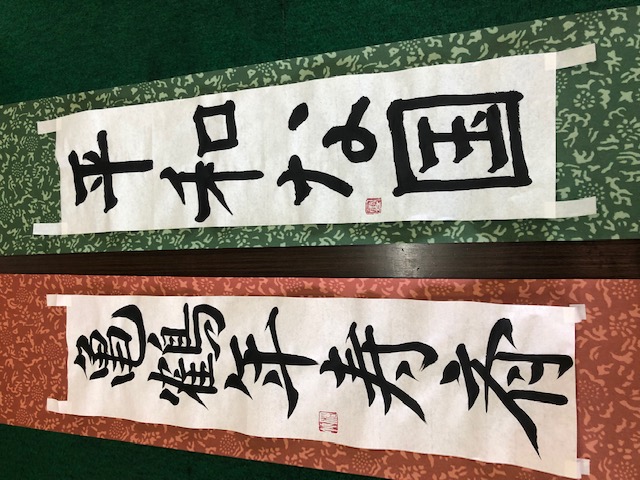 平和な国
亀鶴年寿斉